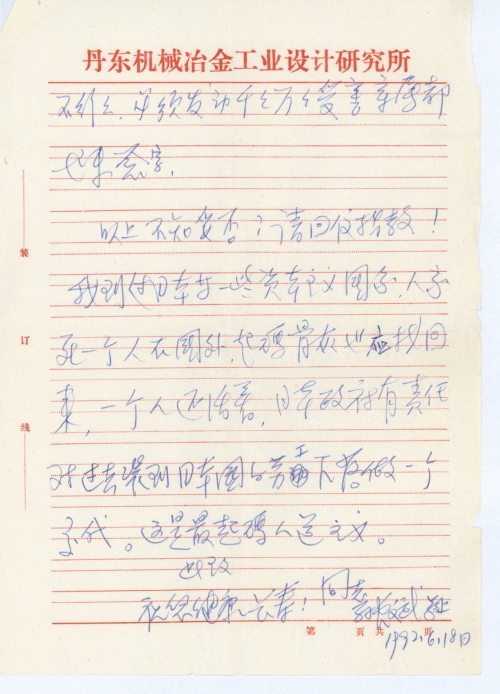 丹东机械冶金工业设计研究所
不行么,必须发动千千万万受害亲属都
也来签字。
以上不知妥否?请回信指教!
我到过日本等一些资本主义国家,人家
死一个人在国外,起码骨灰也应找回
来,一个人还活着,日本政府有责任
对过去掠到日本国的劳工下落做一个
交代。这是最起码人道主义。
此致
祝您健康长寿!
同志
装
订
线
第 页 共 页
1992.6.18日